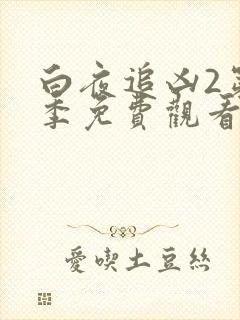 白夜追凶2第
季免費觀看
愛喫土豆絲